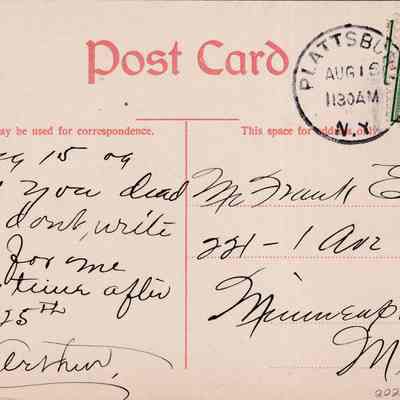 Post Card
PLATTSBU
AUG 16
1130AM
N.Y.
ay be used for correspondence.
This space for address only.
g 15 09
you dead
dont, write
for me
time after
25th
Arthur
Mr Frank E
221-1 Ave
Minneap
M
202